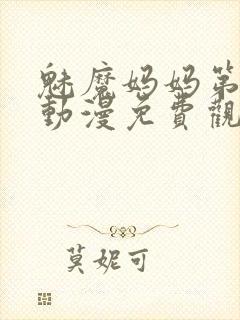 魅魔妈妈第
動漫免費觀
莫妮可